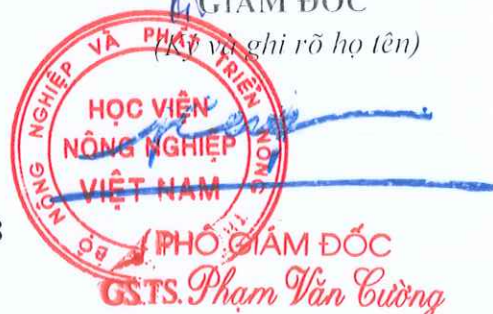 GIÁM ĐỐC
(Ký và ghi rõ họ tên)
BỘ NÔNG NGHIỆP VÀ PHÁT TRIỂN NÔNG
HỌC VIỆN
NÔNG NGHIỆP
VIỆT NAM
PHÓ GIÁM ĐỐC
GS.TS. Phạm Văn Cường